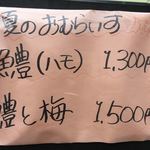 夏のおむらいす
鱧(ハモ) 1,300円
鱧と梅 1,500円